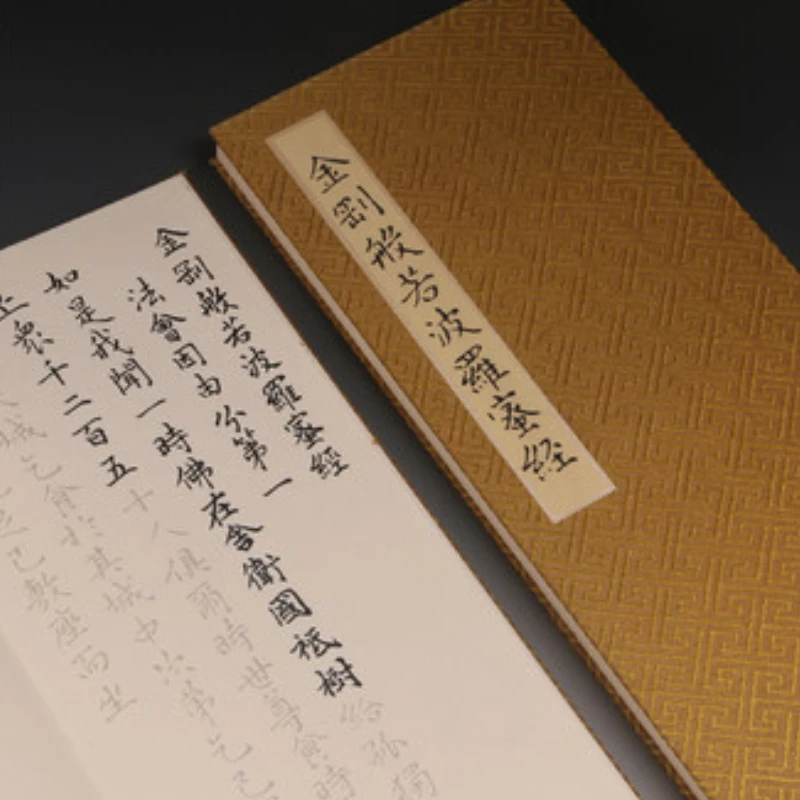 金剛般若波羅蜜经
金剛般若波羅蜜經
法會因由分第一
如是我聞一時佛在舍衛國祇樹給孤獨
丘眾千二百五十人俱爾時世尊食時
城乞食於其城中次第乞已
已敷座而坐